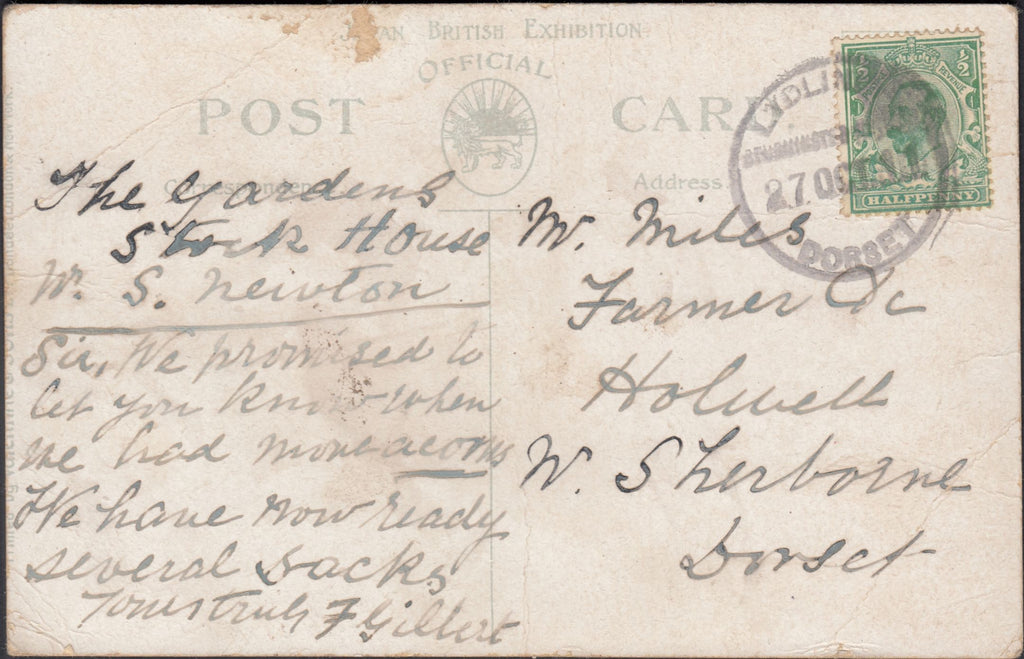 JAPAN BRITISH EXHIBITION
OFFICIAL
POST CARD
Correspondence
Address.
½ ½
POSTAGE REVENUE
HALFPENNY
LYDLIN
STURMINSTER
27 OC
DORSET
The Gardens
Stock House
Nr. S. Newton
Sir, We promised to
let you know when
we had more acorns
We have now ready
several sacks
Yours truly F Gillert
Mr. Miles
Farmer &c
Holwell
Nr. Sherborne
Dorset